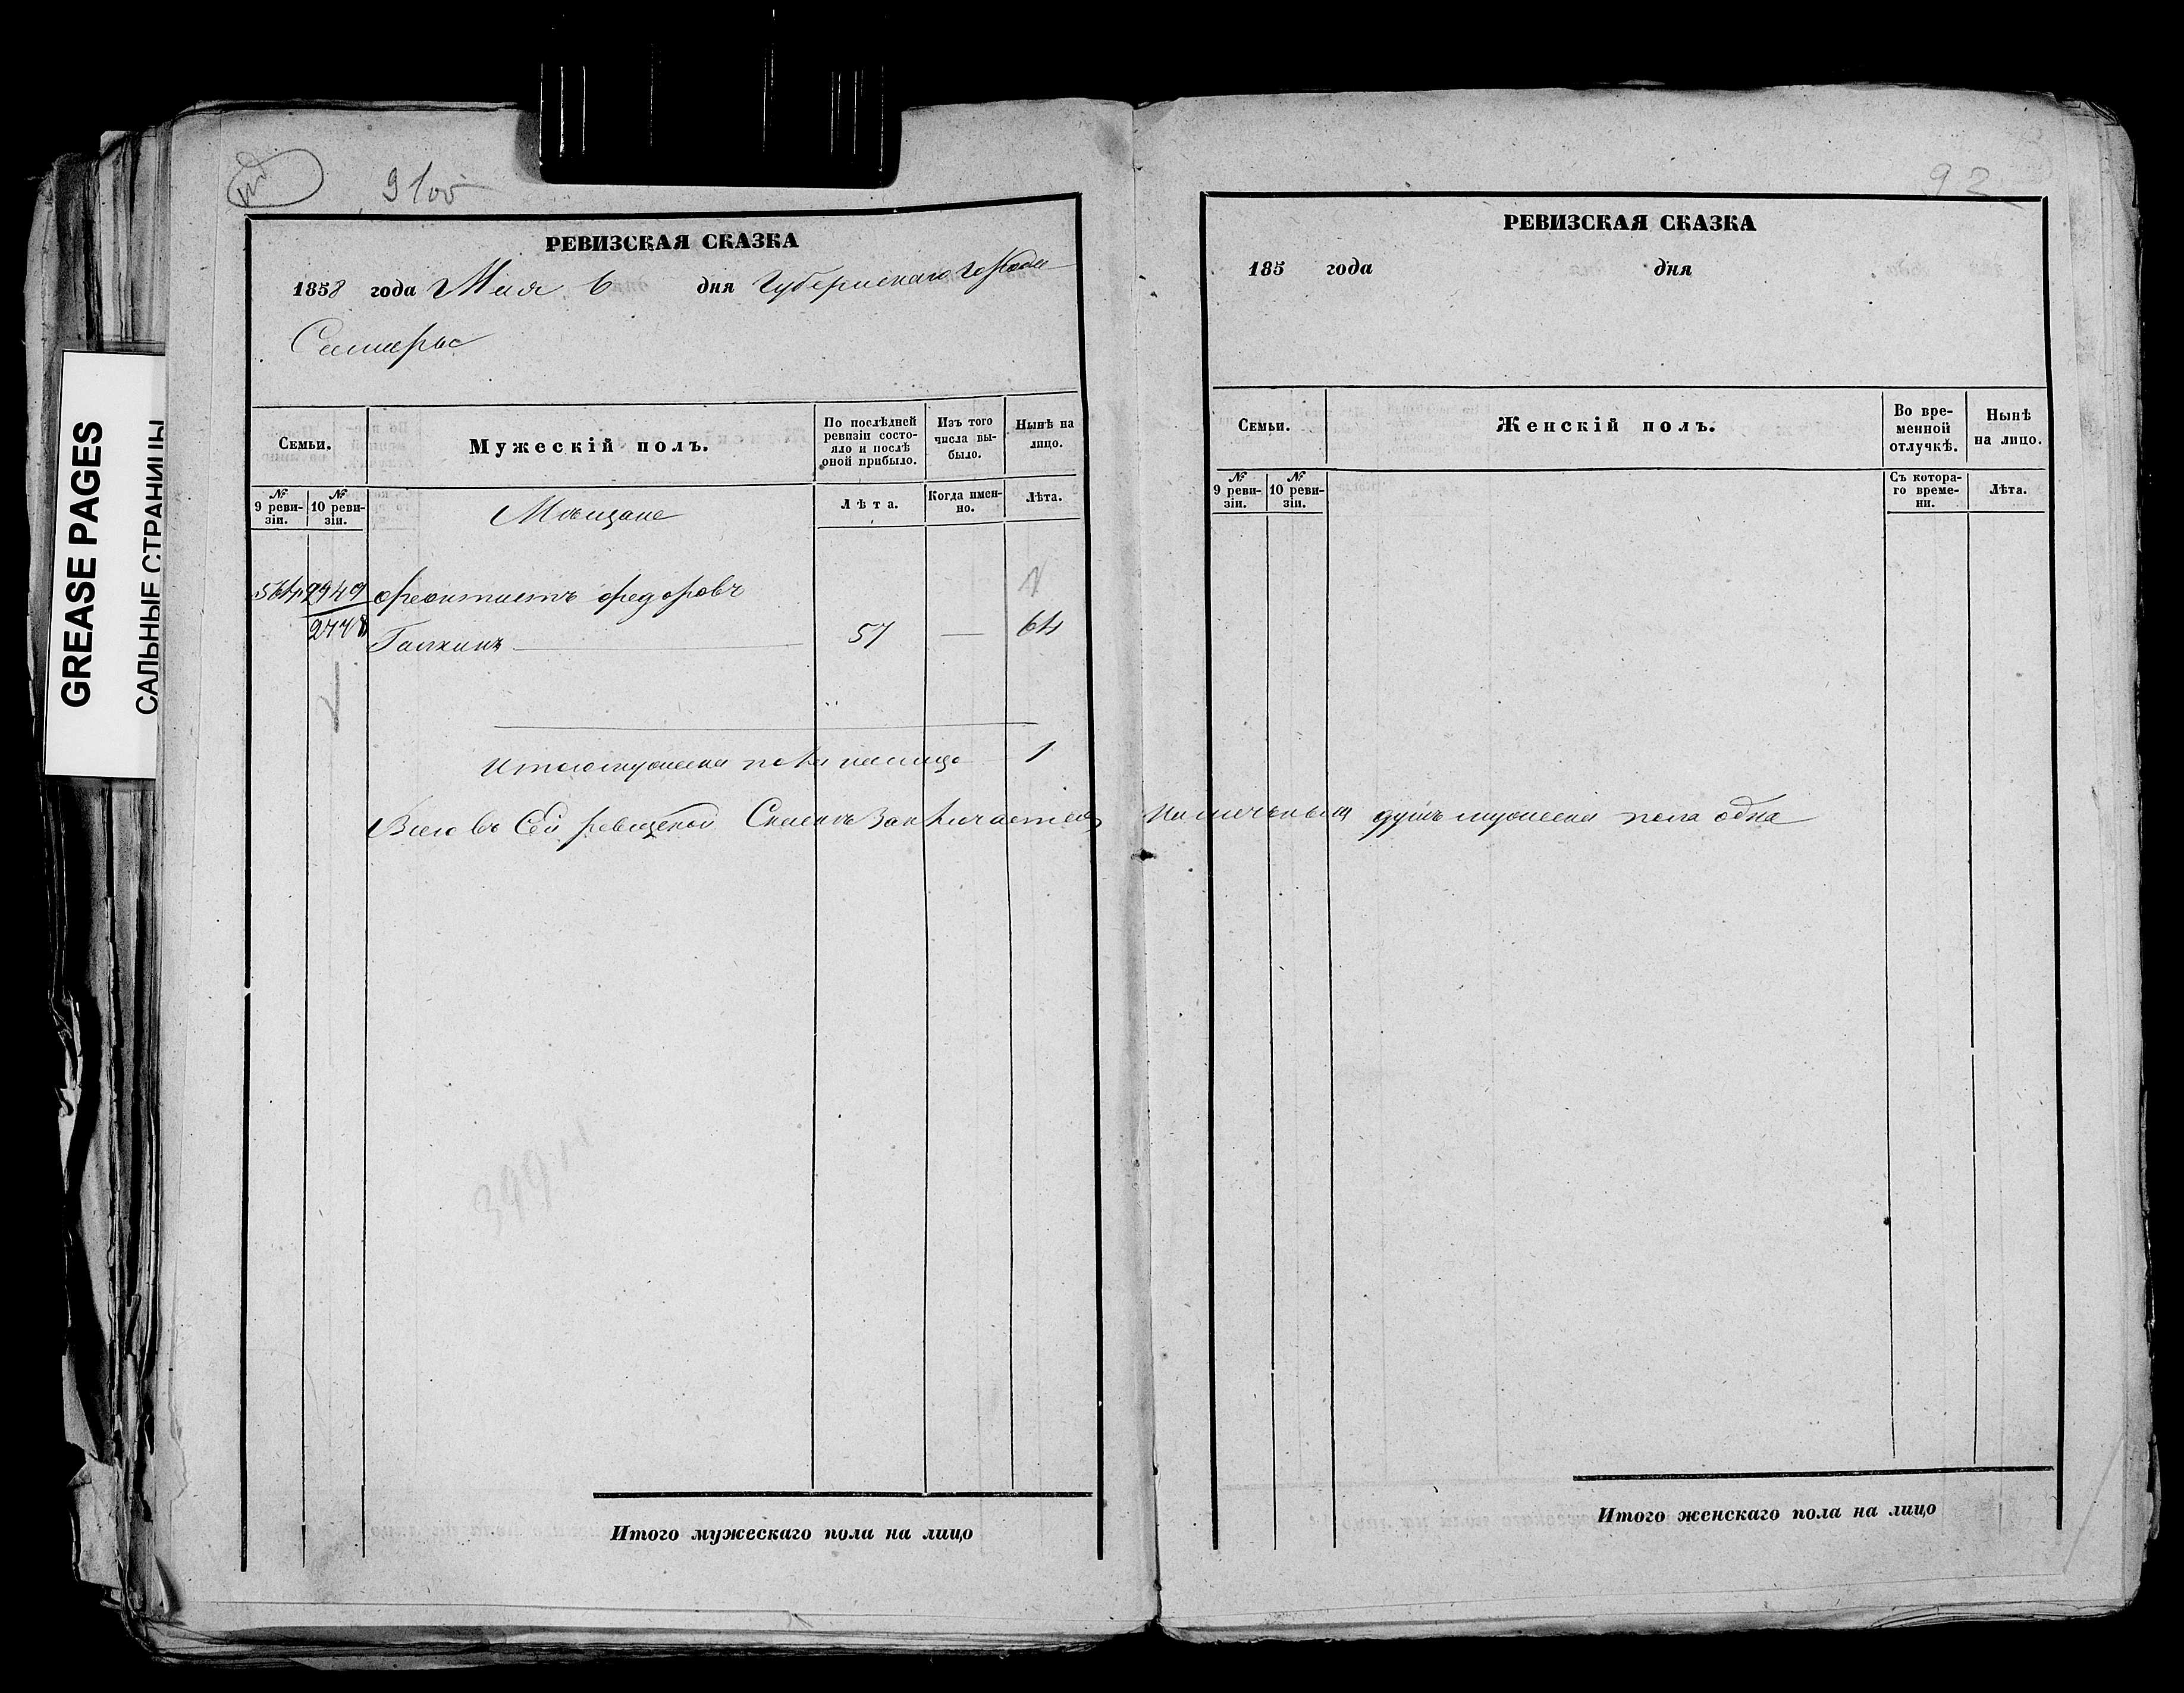 GREASE PAGES
САЛЬНЫЕ СТРАНИЦЫ
РЕВИЗСКАЯ СКАЗКА
1858 года Мая 6 дня Губернскаго города
Самары
Семьи.
Мужескій полъ.
По послѣдней ревизіи состояло и послѣ оной прибыло.
Изъ того числа выбыло.
Нынѣ на лицо.
№ 9 ревизіи.
№ 10 ревизіи.
Мѣщане
Лѣта.
Когда именно.
Лѣта.
2949 Феоктистъ Федоровъ
Галкинъ 57 — 64
Итого мужеска пола на лицо 1
Всего въ сей ревизской Сказкѣ Заключается Наличныхъ душъ мужеска пола одна
Итого мужескаго пола на лицо
93
РЕВИЗСКАЯ СКАЗКА
185 года дня
Семьи.
Женскій полъ.
Во временной отлучкѣ.
Нынѣ на лицо.
№ 9 ревизіи.
№ 10 ревизіи.
Съ котораго времени.
Лѣта.
Итого женскаго пола на лицо